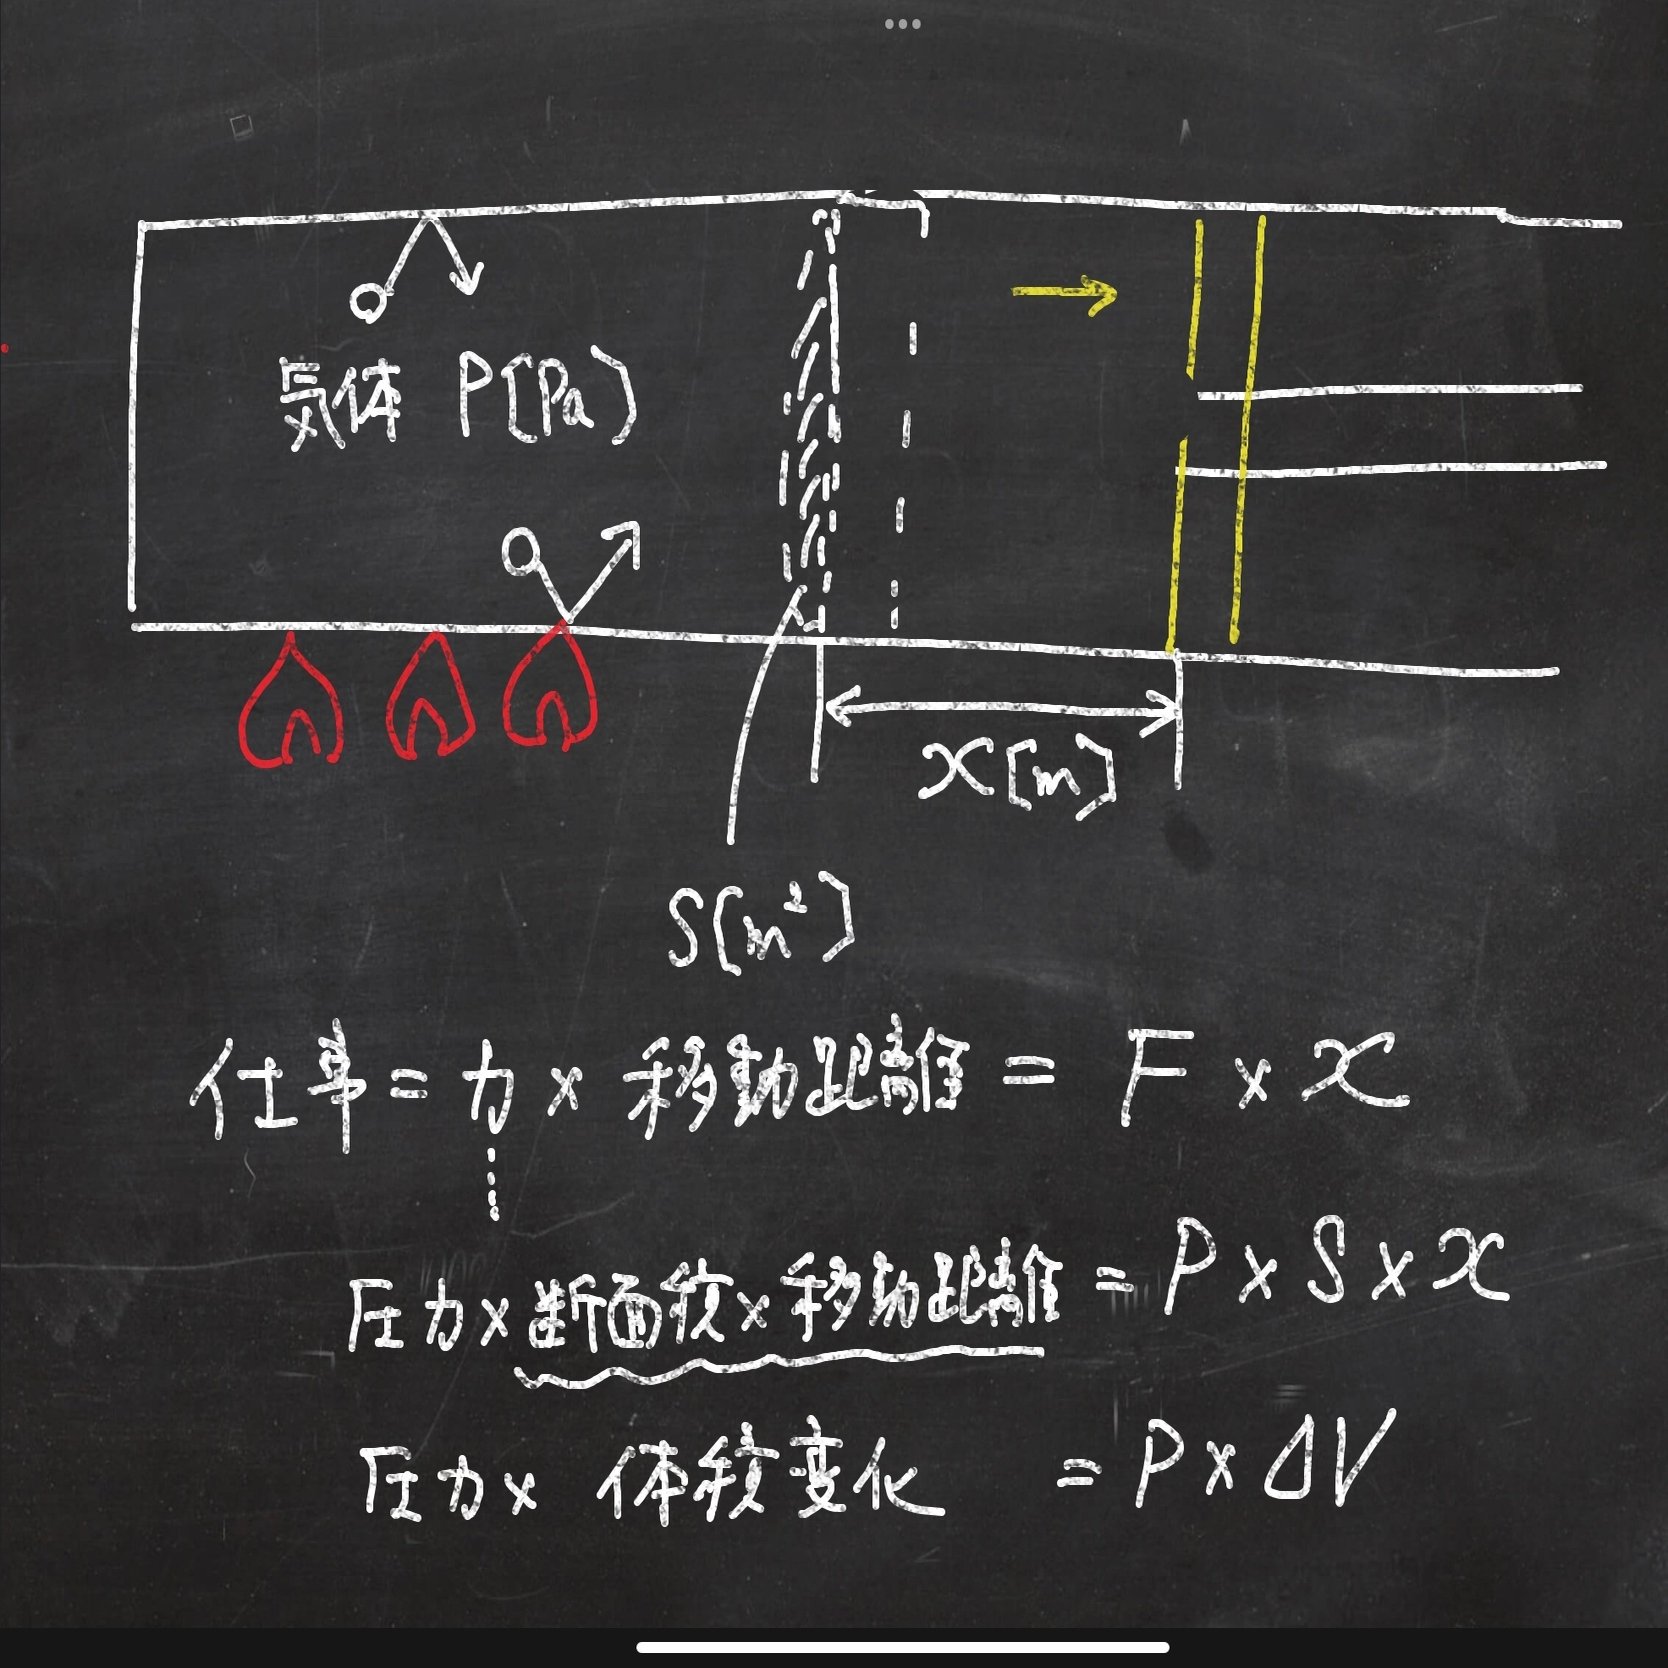 気体 P[Pa]
x[m]
S[m²]
仕事 = 力 × 移動距離 = F × x
圧力 × 断面積 × 移動距離 = P × S × x
圧力 × 体積変化 = P × ΔV